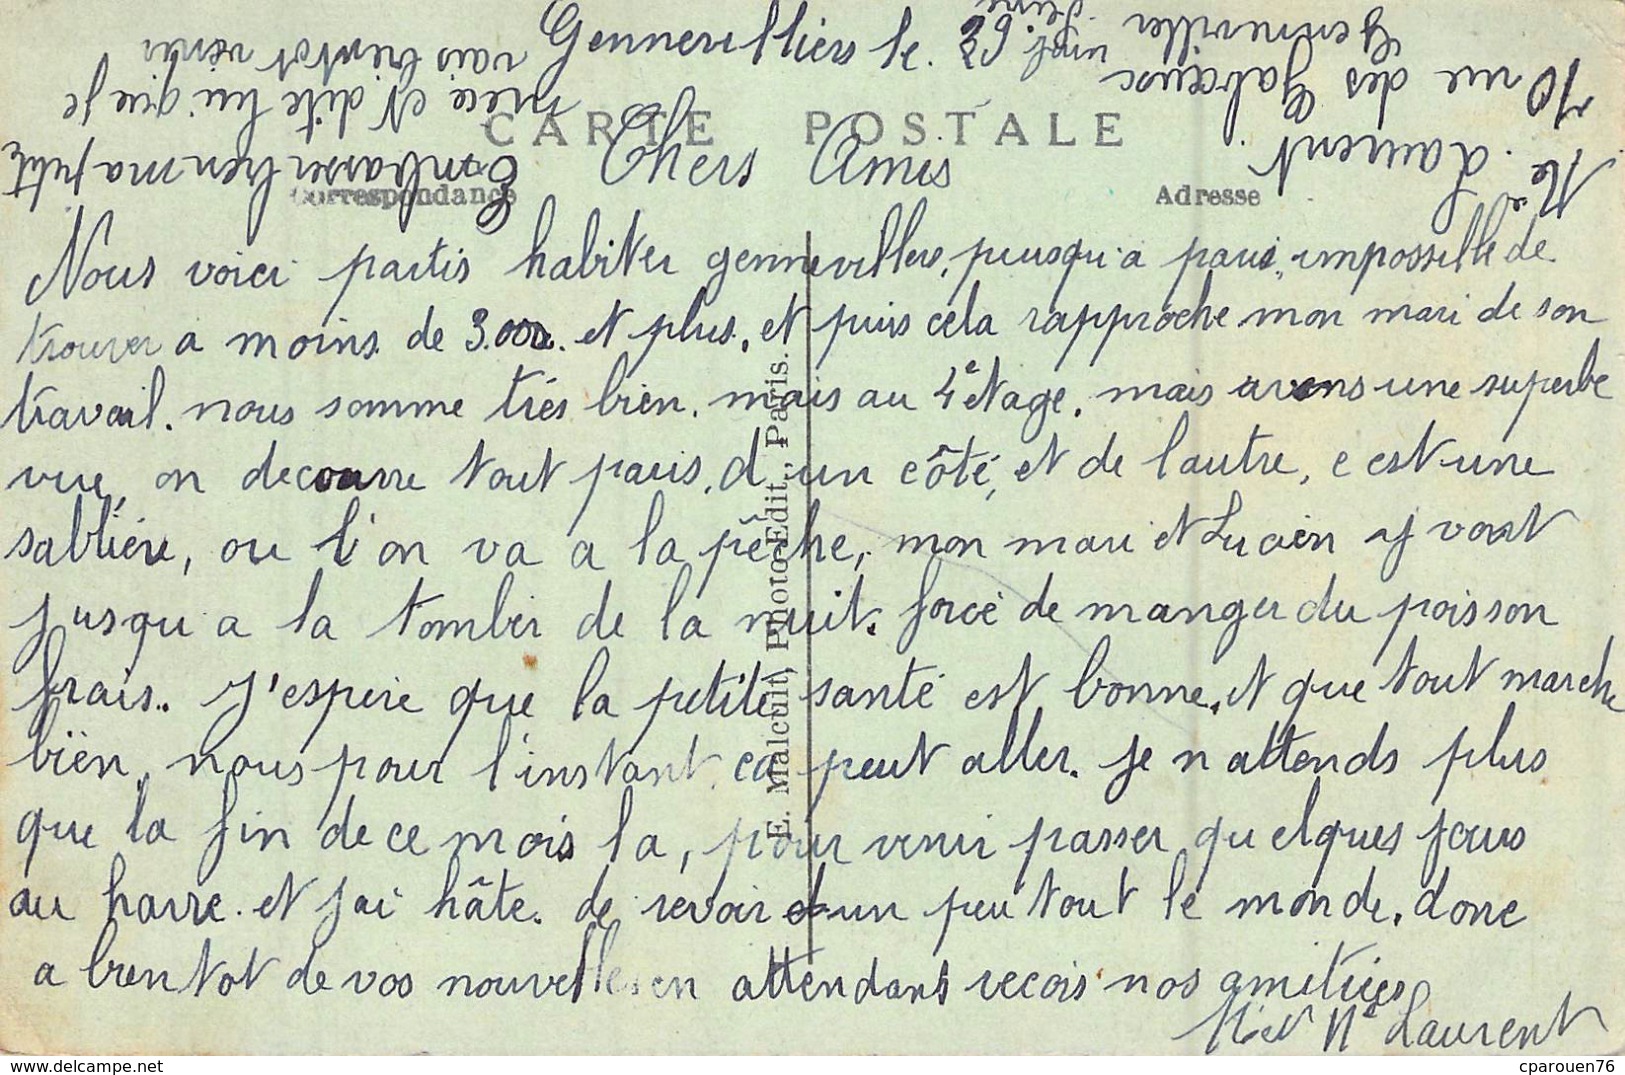 Gennevilliers le. 29.
CARTE POSTALE
Chers Amis
Correspondance
Adresse
Nous voici partis habiter gennevilliers, puisqu'a paris, impossible de
trouver a moins de 3.000. et plus, et puis cela rapproche mon mari de son
travail. nous somme très bien. mais au 4e etage. mais avons une superbe
vue, on decouvre tout paris, d'un côté, et de lautre, c est une
sablière, ou l'on va a la pêche, mon mari et Lucien y vont
jusqu a la tomber de la nuit. forcé de manger du poisson
frais.. J'espere que la petite santé est bonne, et que tout marche
bien, nous pour l'instant ca peut aller. je n attends plus
que la fin de ce mois la, pour venir passer quelques jours
au havre. et j ai hâte. de revoir un peu tout le monde. donc
a bientot de vos nouvelles en attendant recois nos amitiées
Mr et Me Laurent
Embrasser bien ma petite
niece et dite lui que je
vais bientot venir
Me Laurent
10 rue des Gabœuse
Gennevillier
E. Malcuit, Photo-Edit., Paris.
delcampe.net
cparouen76